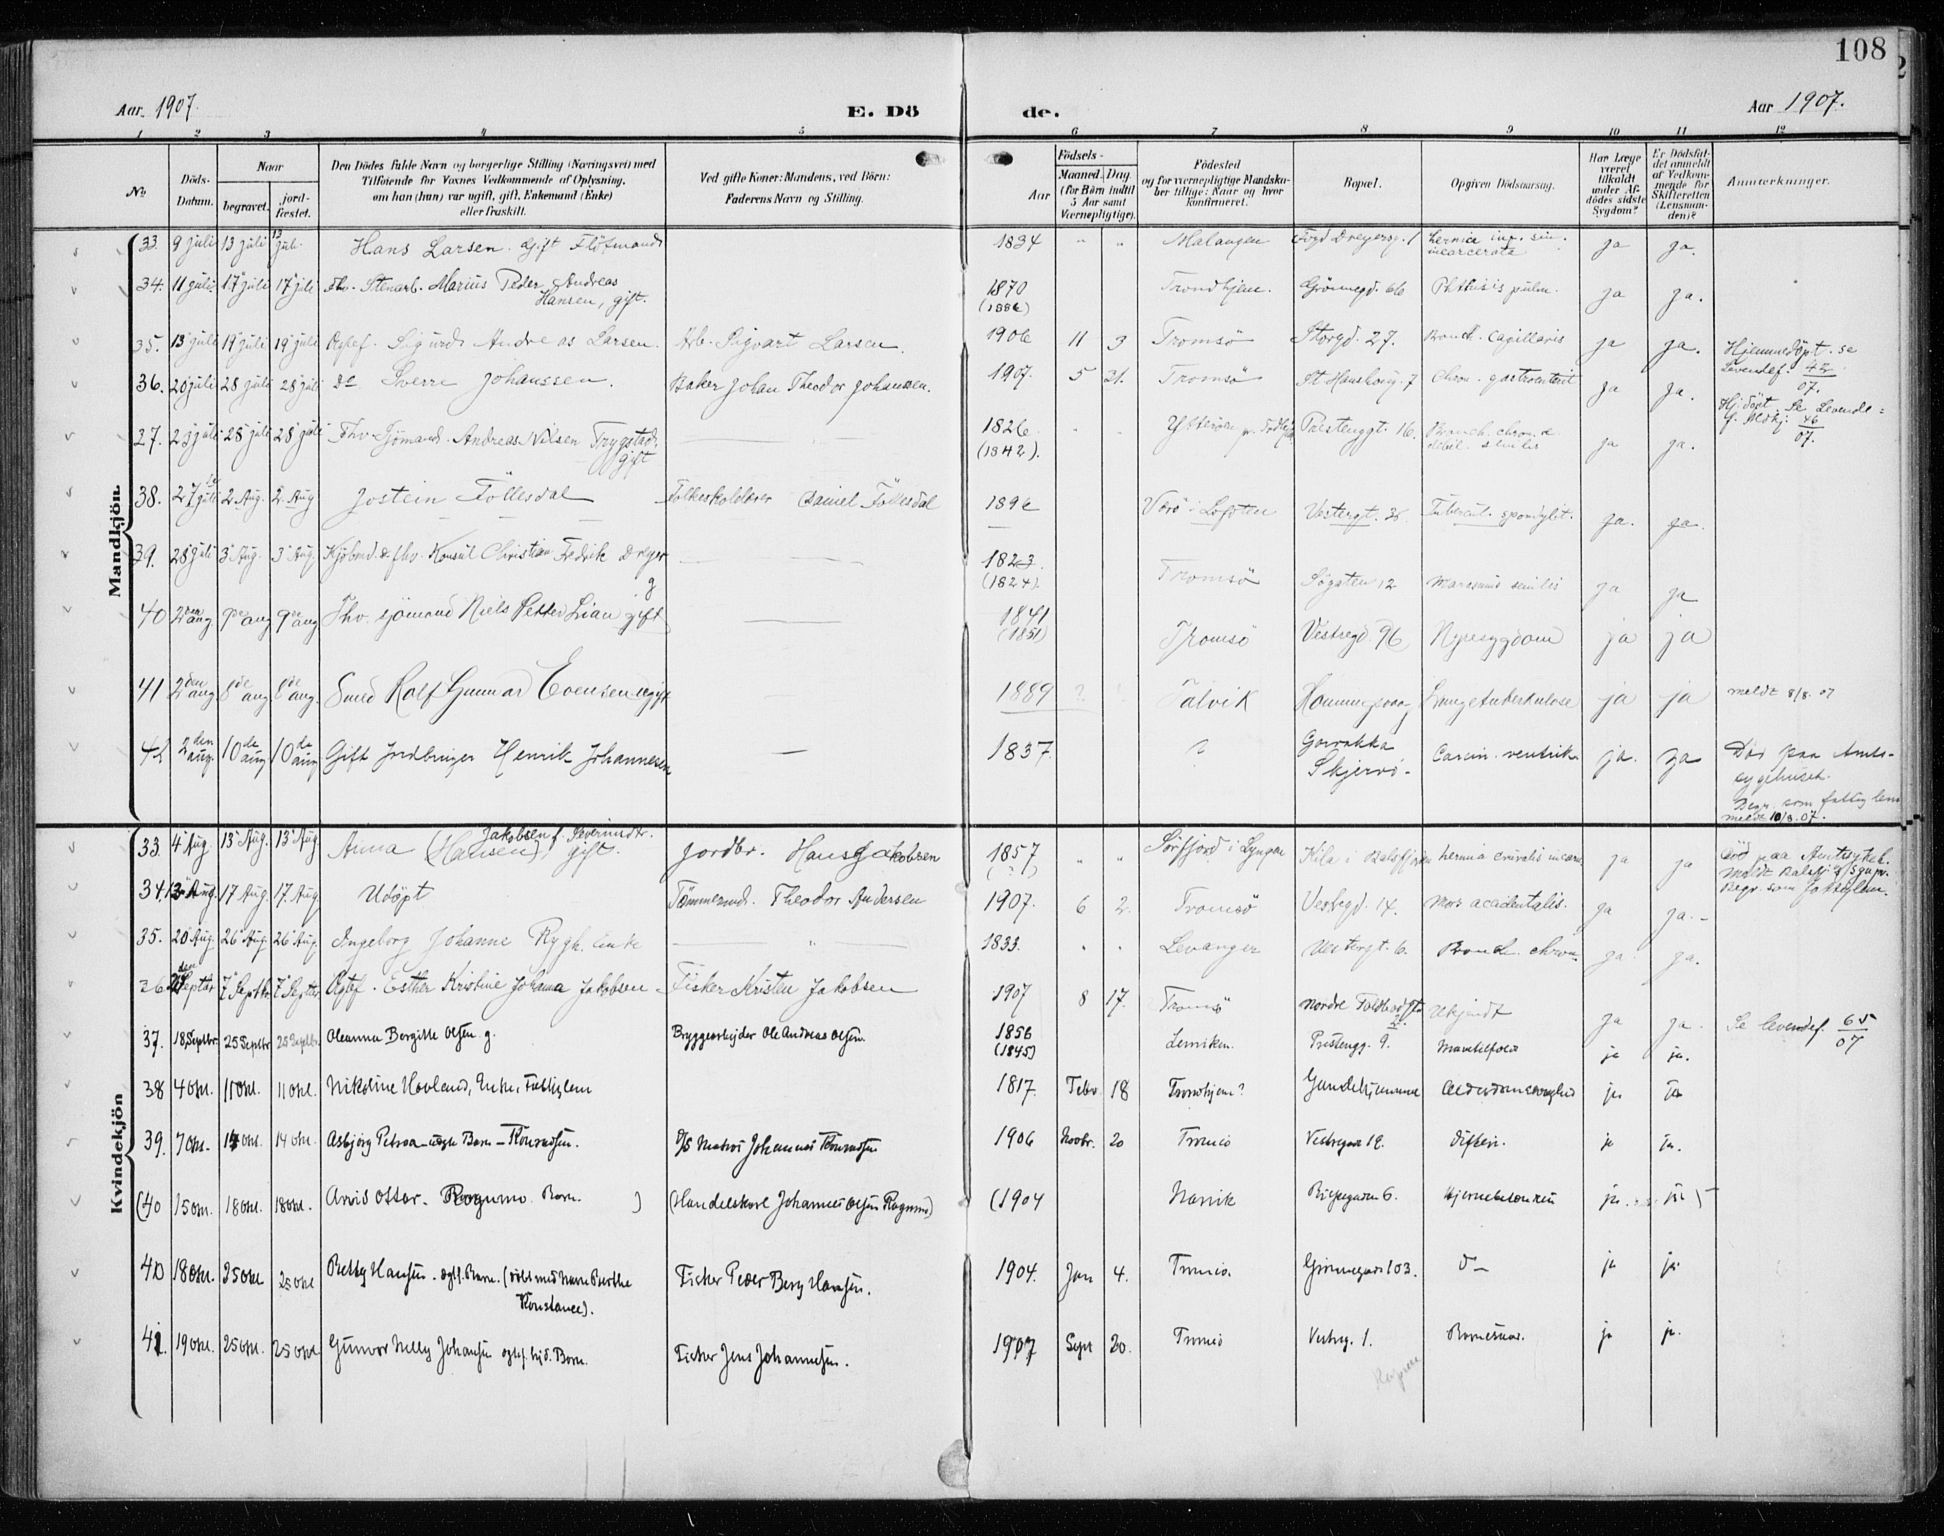 108
Aar 1907.
E. Dö
de.
Aar 1907.
1 2 3 4 5 6 7 8 9 10 11 12
No.
Döds-Datum.
Naar
begravet.
jord-fæstet.
Den Dödes fulde Navn og borgerlige Stilling (Næringsvei) med
Tilföiende for Voxnes Vedkommende af Oplysning,
om han (hun) var ugift, gift, Enkemand (Enke)
eller fraskilt.
Ved gifte Koner: Mandens, ved Börn:
Faderens Navn og Stilling.
Födsels-
Aar
Maaned. Dag.
(for Börn indtil
5 Aar samt
Værnepligtige).
Födested
og for værnepligtige Mandska-
ber tillige: Naar og hvor
konfirmeret.
Bopæl.
Opgiven Dödsaarsag.
Har Læge
været
tilkaldt
under Af-
dödes sidste
Sygdom?
Er Dödsfal-
det anmeldt
af Vedkom-
mende for
Skifteretten
(Lensman-
den)?
Anmærkninger.
Mandkjön.
33. 9 juli 13 juli 13 jul. Hans Larsen. Gift 1834 " " Malangen hernia ing. sin. incarcerata ja ja.
34. 11 juli 17 juli 17 juli Fhv. Stenarb. Marius Peder Andreas Hansen, gift. 1870 (1886) Trondhjem. Grönnegd. 66 Phthisis pulm. ja ja.
35. 13 juli 19 juli 19 juli Ægtef. Sigurd Andreas Larsen. Arb. Sigvart Larsen. 1906 11 3 Tromsö Storgd. 27. Bronch. capillaris ja ja.
36. 20 juli 28 juli 28 juli do Sverre Johanssen. Baker Johan Theodor Johanssen. 1907. 5 31. Tromsö St Hanshaug. 7 Chron. gastroenterit ja ja. Hjemmedöpt. se Levendef. 42/07.
37. 23 juli 28 juli 28 juli Fhv. Sjömand. Andreas Nilsen Trygstad. gift 1826 (1842). Ytterøen Prestenggt. 16. Bronch. chron. & debil. senilis ja ja. Hjdöpt. Se Levende f. 46/07.
38. 27 juli 2. Aug. 2. Aug Jostein Föllesdal Folkeskolelærer Daniel Föllesdal 1896 Værö i Lofoten Vestergt. 38 Tubercul. spondylit. ja. ja.
39. 28 juli 3 Aug. 3 Aug Kjöbmd. & fhv. Konsul Christian Fredrik Dreyer g 1823. (1824). Tromsö Søgaten 12 Marasmus senilis ja ja
40 2den aug. 9de aug 9de aug Fhv. sjömand Niels Petter Lian gift 1841 (1851) Tromsö Vestregd. 96 Nyresygdom ja ja
41 2den aug 8de aug 8de aug. Smed Rolf Gunnar Evensen ugift 1889 ? Talvik Honningsvaag Lungetuberkulose ja ja meldt 8/8. 07
42 2den aug. 10de aug 10de aug Gift Jordbruger Henrik Johannesen 1837 ? Skjervö. Carcin. ventrik. ja. ja Död paa Amts-
sygehuset.
Begr. som fattiglem
meldt 10/8. 07.
Kvindekjön
33. 4 Aug. 13 Aug. 13 Aug Anna (Hansen) Jakobsen f. Severinsdtr. gift. Jordbr. Hans Jakobsen 1857 (?) " " Sörfjord i Lyngen hernia cruralis incarc ja ja död paa Amtssykeh. Begr. som fattiglem.
34. 13 Aug. 17 Aug 17. Aug Udöpt Tömmermd. Theodor Andersen 1907. 6 2. Tromsö Vestregd. 14. Mors accidentalis. ja ja.
35. 20 Aug. 26 Aug. 26 Aug. Ingeborg Johanne Rygh. Enke " 1833. " " Levanger Vestregt. 6. Bronch. chron. ja ja.
36 Septbr 7 Septbr 7 Septbr Ægtef. Esther Kristine Johanna Jakobsen Fisker Kristen Jakobsen 1907 8 17. Tromsö Nordre Ukjendt ja ja. Se levendef. 65/07
37. 18 Septbr. 25 Septbr 25 Septbr. Oleanna Bergitte Olsen g. Bryggearbejder Ole Andreas Olsen. 1856 (1845) Lenviken. Prestengg. 9. ja ja.
38 4 Okt. 11 Okt. 11 Okt. Nikoline Hovland, Enke, Fattiglem 1817. Febr 18 Trondhjem? Gamlehjemmet ja ja
39. 7 Okt. 14 Okt. 14 Okt. Asbjörg Petrea - Barn - Konradsen. Johannes Konradsen 1906 Novbr. 20 Tromsö Vestregade 19. Difteri. ja ja.
(40 15 Okt. 18 Okt. 18 Okt. Arvid Ottar. Rognmo. Barn. ) (Handelskarl Johannes Olsen Rognmo) (1904 Narvik ja. ja )
40 18 Okt. 25 Okt 25 Okt Betty Hansen. ægtf. Barn. (döbt med Navn Berthe Konstance). Fisker Peder Berg Hansen. 1904. Jan 4. Tromsö. Grönnegade 103. do ja ja
41. 19 Okt. 25 Okt. 25 Okt Gunvor Nelly Johansen ægtef. hjd. Barn. Fisker Jens Johannesen. 1907 Sept 20. Tromsö Vestreg. 1. ja ja.